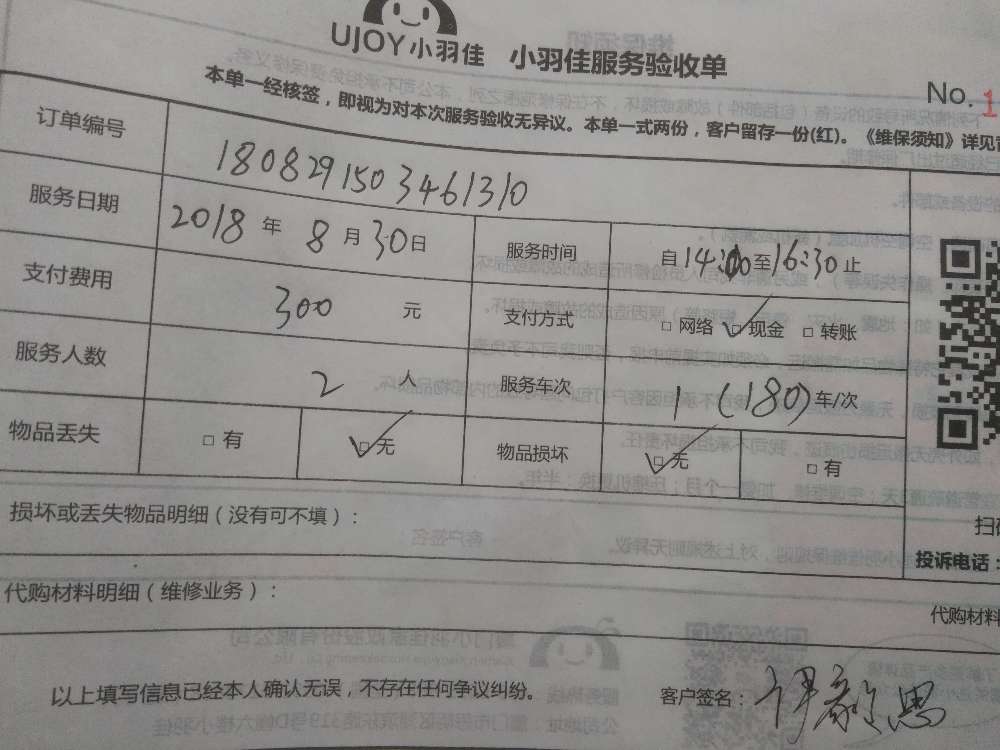 UJOY小羽佳 小羽佳服务验收单
No. 1
本单一经核签，即视为对本次服务验收无异议。本单一式两份，客户留存一份(红)。《维保须知》详见背
订单编号 1808291503461310
服务日期 2018 年 8 月 30 日 服务时间 自 14:00 至 16:30 止
支付费用 300 元 支付方式 □ 网络 ☑ 现金 □ 转账
服务人数 2 人 服务车次 1 (180) 车/次
物品丢失 □ 有 ☑ 无 物品损坏 ☑ 无 □ 有
损坏或丢失物品明细（没有可不填）：
扫
投诉电话：
代购材料明细（维修业务）：
代购材料
以上填写信息已经本人确认无误，不存在任何争议纠纷。 客户签名：